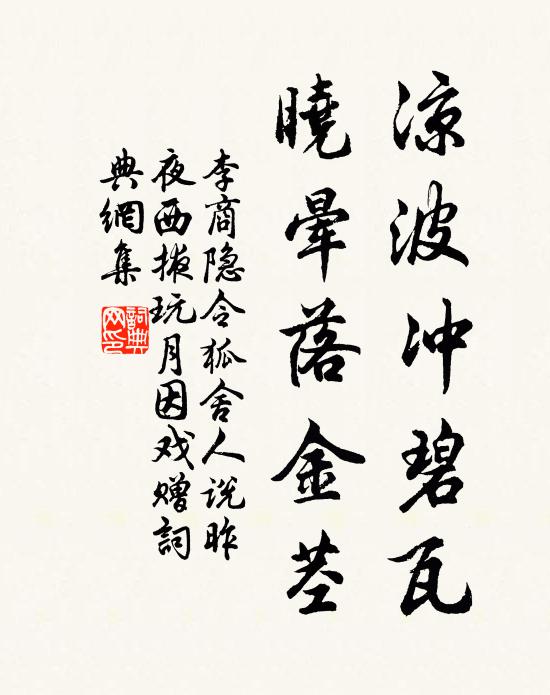 凉波冲碧瓦
曉暈落金茎
李商隐令狐舍人说昨
夜西掖玩月因戏赠詞
典網集
詞典网印